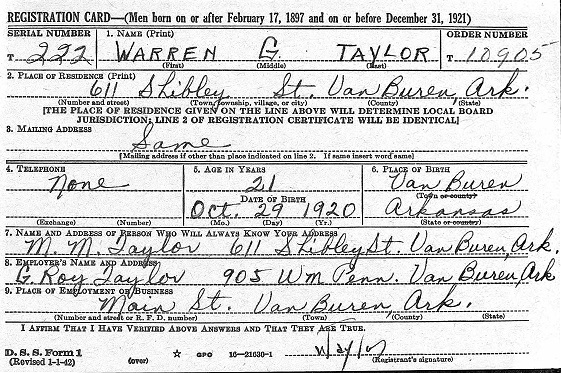 REGISTRATION CARD—(Men born on or after February 17, 1897 and on or before December 31, 1921)
SERIAL NUMBER 1. NAME (Print) ORDER NUMBER
T 222 WARREN G. TAYLOR T 10905
(First) (Middle) (Last)
2. PLACE OF RESIDENCE (Print)
611 Shibley St. Van Buren, Ark.
(Number and street) (Town, township, village, or city) (County) (State)
[THE PLACE OF RESIDENCE GIVEN ON THE LINE ABOVE WILL DETERMINE LOCAL BOARD
JURISDICTION; LINE 2 OF REGISTRATION CERTIFICATE WILL BE IDENTICAL]
3. MAILING ADDRESS
Same
[Mailing address if other than place indicated on line 2. If same insert word same]
4. TELEPHONE 5. AGE IN YEARS 6. PLACE OF BIRTH
None 21 Van Buren
DATE OF BIRTH (Town or county)
Oct. 29 1920 Arkansas
(Exchange) (Number) (Mo.) (Day) (Yr.) (State or country)
7. NAME AND ADDRESS OF PERSON WHO WILL ALWAYS KNOW YOUR ADDRESS
M. M. Taylor 611 Shibley St. Van Buren, Ark.
8. EMPLOYER'S NAME AND ADDRESS
G. Roy Taylor 905 Wm Penn. Van Buren, Ark
9. PLACE OF EMPLOYMENT OR BUSINESS
Main St. Van Buren, Ark.
(Number and street or R. F. D. number) (Town) (County) (State)
I AFFIRM THAT I HAVE VERIFIED ABOVE ANSWERS AND THAT THEY ARE TRUE.
D. S. S. Form 1
(Revised 1-1-42) (over) ☆ GPO 16—21630-1
(Registrant's signature)